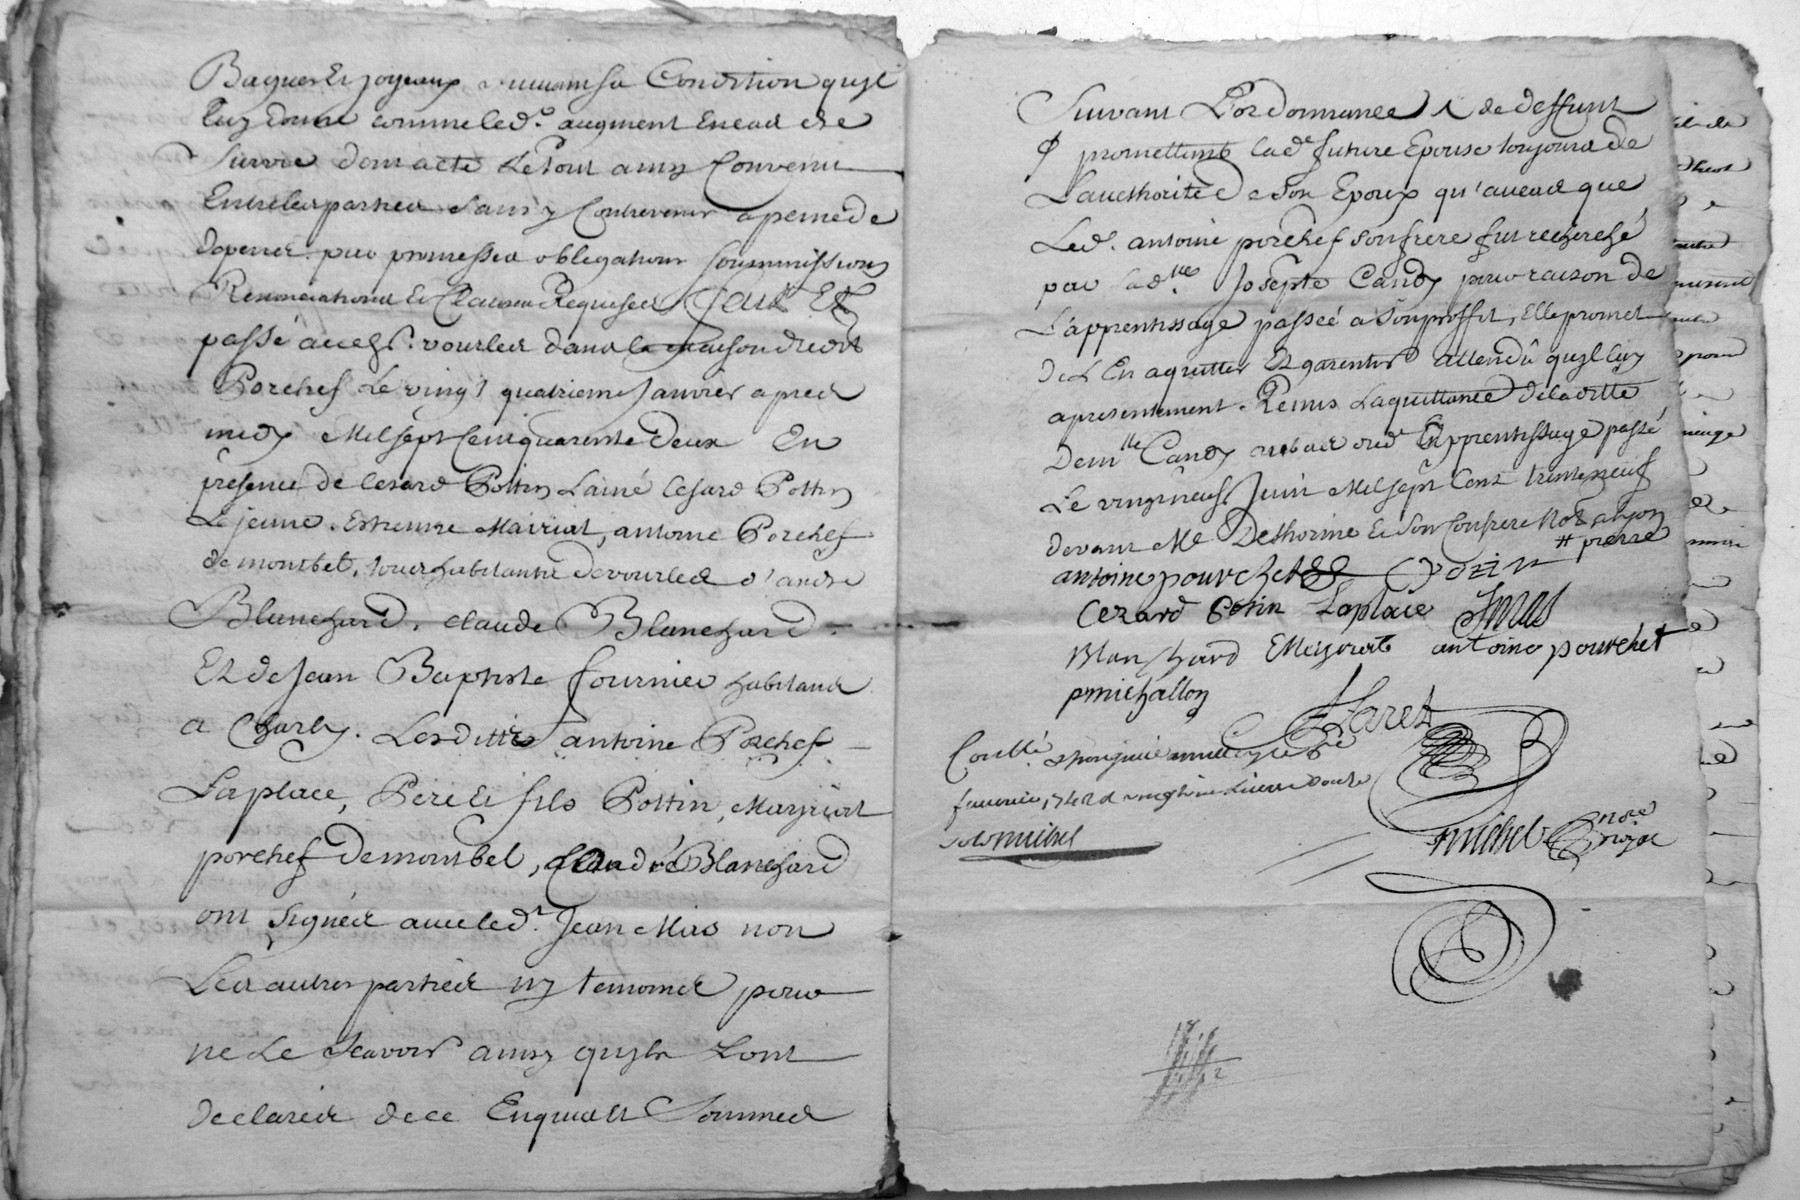 Bagues Et joyeaux, suivant sa Condition qu'jl
luy donne comme led.t augment En cas de
survie dont acte Le tout ainsy Convenu
Entre les parties sans y Contrevenir a peine de
depens. par promesses obligations soummissions
Renonciations Et Clauses Requises fait Et
passé au d. vourles dans la maison dudit
Porchef Le vingt quatrieme Janvier apres
midy Mil sept Cent quarente deux En
presence de Cesard Pottin Lainé Cesard Pottin
Le jeune, Estienne Mairiat, antoine Porchef
de montbel, tous habitants de vourles d'andre
Blanchard, claude Blanchard
Et de Jean Baptiste fournier habitants
a Charly. Lesdittes antoine Porchef
Laplace, Pere Et fils Pottin, Mayriat
porchef de montbel, André Blanchard
ont signéz avec led.t Jean Miras non
Les autres parties ny temoins pour
ne Le scavoir ainsy qu'jls Lont
declaréz de ce Enquits Sommes
Suivant L'ordonnance / de deffunt
promettant lad.e future Epouse toujours de
L'authorité de son Epoux qu'au cas que
Led. antoine porchef son frere fut recherché
par lad.lle Josepte Candy pour raison de
L'apprentissage passé a son proffit, Elle promet
de L'En aquitter Et garentir attendû qu'jl luy
a presentement. Remis La quittance de laditte
Dem.lle Candy au bas dud. Apprentissage passé
Le vingt neuf Juin Mil sept Cent trente neuf
devant Me Deshorme Et son Confrere Not. a Lyon
# pierre
antoine pourchet
Cezard Potin Laplace Miras
Blanchard E Meyriat antoine pourchet
p michallon
michel no.re royal